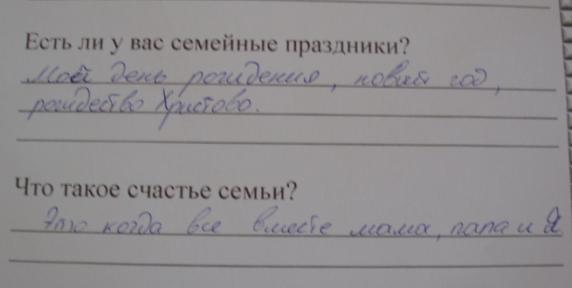 Есть ли у вас семейные праздники?
Мой день рождения, новый год,
рождество Христово.
Что такое счастье семьи?
Это когда все вместе мама, папа и Я